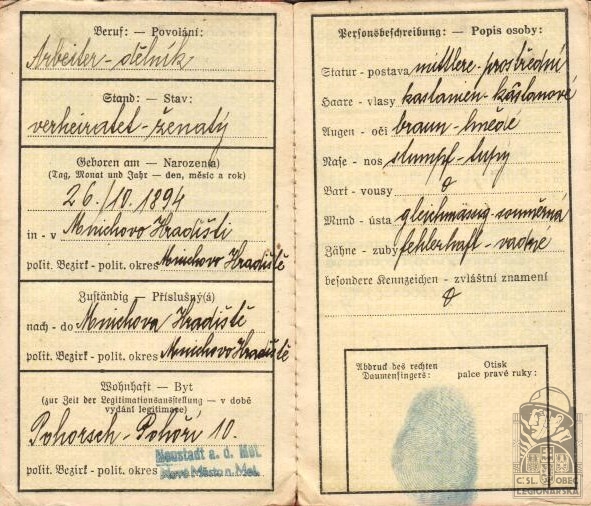 Beruf: — Povolání:
Arbeiter - dělník
Stand: — Stav:
verheiratet - ženatý
Geboren am — Narozen(a)
(Tag, Monat und Jahr — den, měsíc a rok)
26./10. 1894
in - v Mnichovo Hradišti
polit. Bezirk - polit. okres Mnichovo Hradiště
Zuständig — Příslušný(á)
nach - do Mnichova Hradiště
polit. Bezirk - polit. okres Mnichovo Hradiště
Wohnhaft — Byt
(zur Zeit der Legitimationsausstellung — v době
vydání legitimace)
Pohorsch - Pohoří 10.
polit. Bezirk - polit. okres Neustadt a. d. Met.
Nové Město n. Met.
Personsbeschreibung: — Popis osoby:
Statur - postava mittlere - prostřední
Haare - vlasy kastanien - kaštanové
Augen - oči braun - hnědé
Nase - nos stumpf - tupý
Bart - vousy
Mund - ústa gleichmässig - souměrná
Zähne - zuby fehlerhaft - vadné
besondere Kennzeichen - zvláštní znamení
Abdruck des rechten
Daumenfingers:
Otisk
palce pravé ruky:
ČSL. OBEC
LEGIONÁŘSKÁ